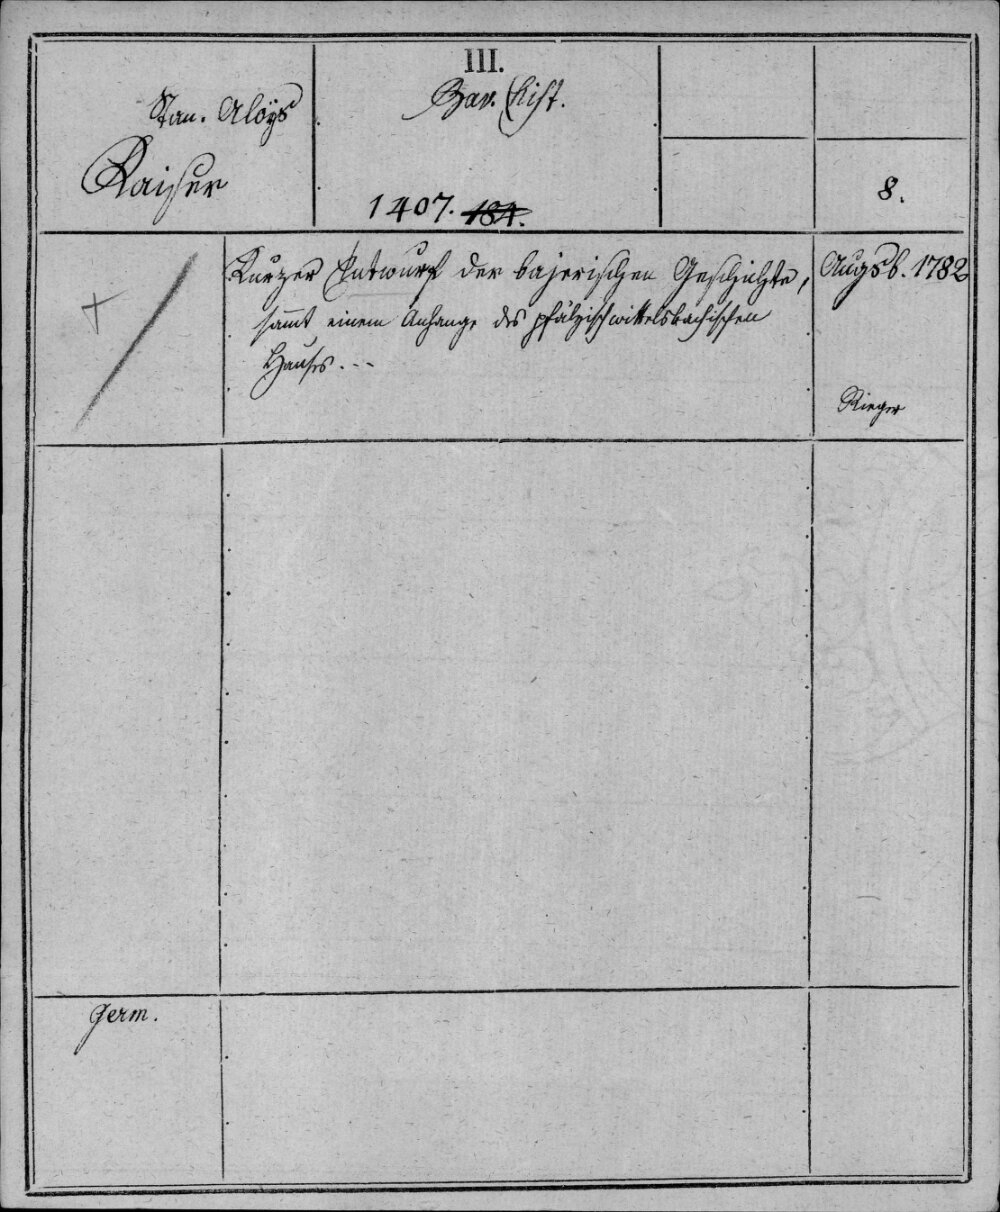 III.
Stan. Aloys
Bav. Hist.
Kaiser
8.
1407. 184.
Kurzer Entwurf der bajerischen Geschichte,
Augsb. 1782
sam̅t einem Anhange des pfälzischwittelsbachischen
Hauses . . .
Rieger
Germ.